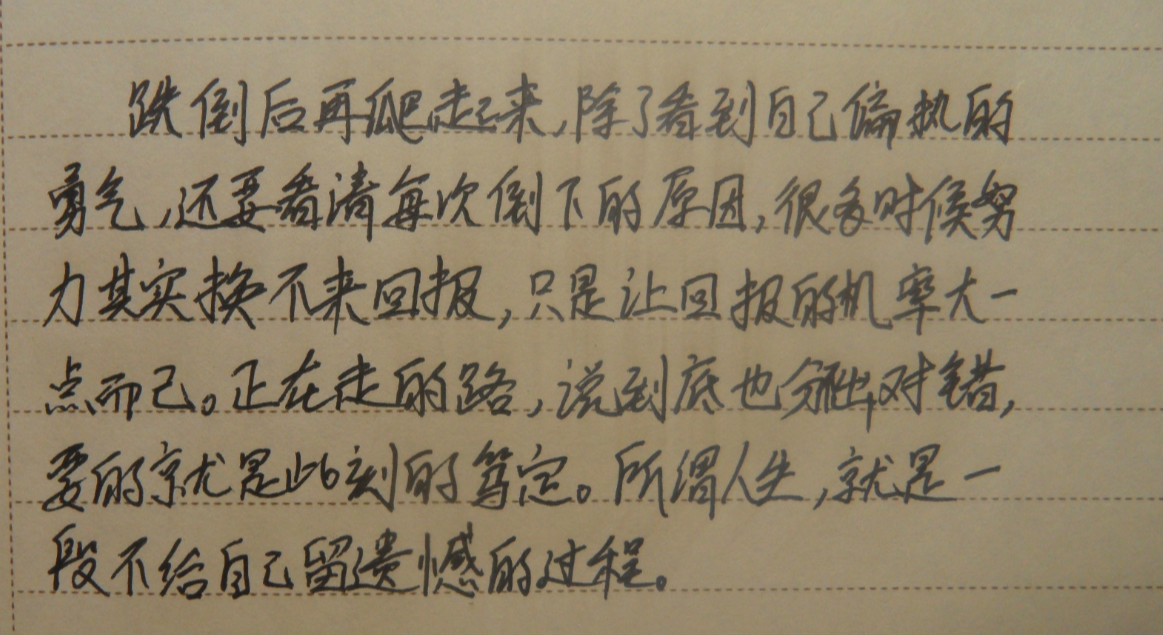 跌倒后再爬起来,除了看到自己偏执的
勇气,还要看清每次倒下的原因,很多时候努
力其实换不来回报,只是让回报的机率大一
点而已。正在走的路,说到底也分不出对错,
要的就是此刻的笃定。所谓人生,就是一
段不给自己留遗憾的过程。